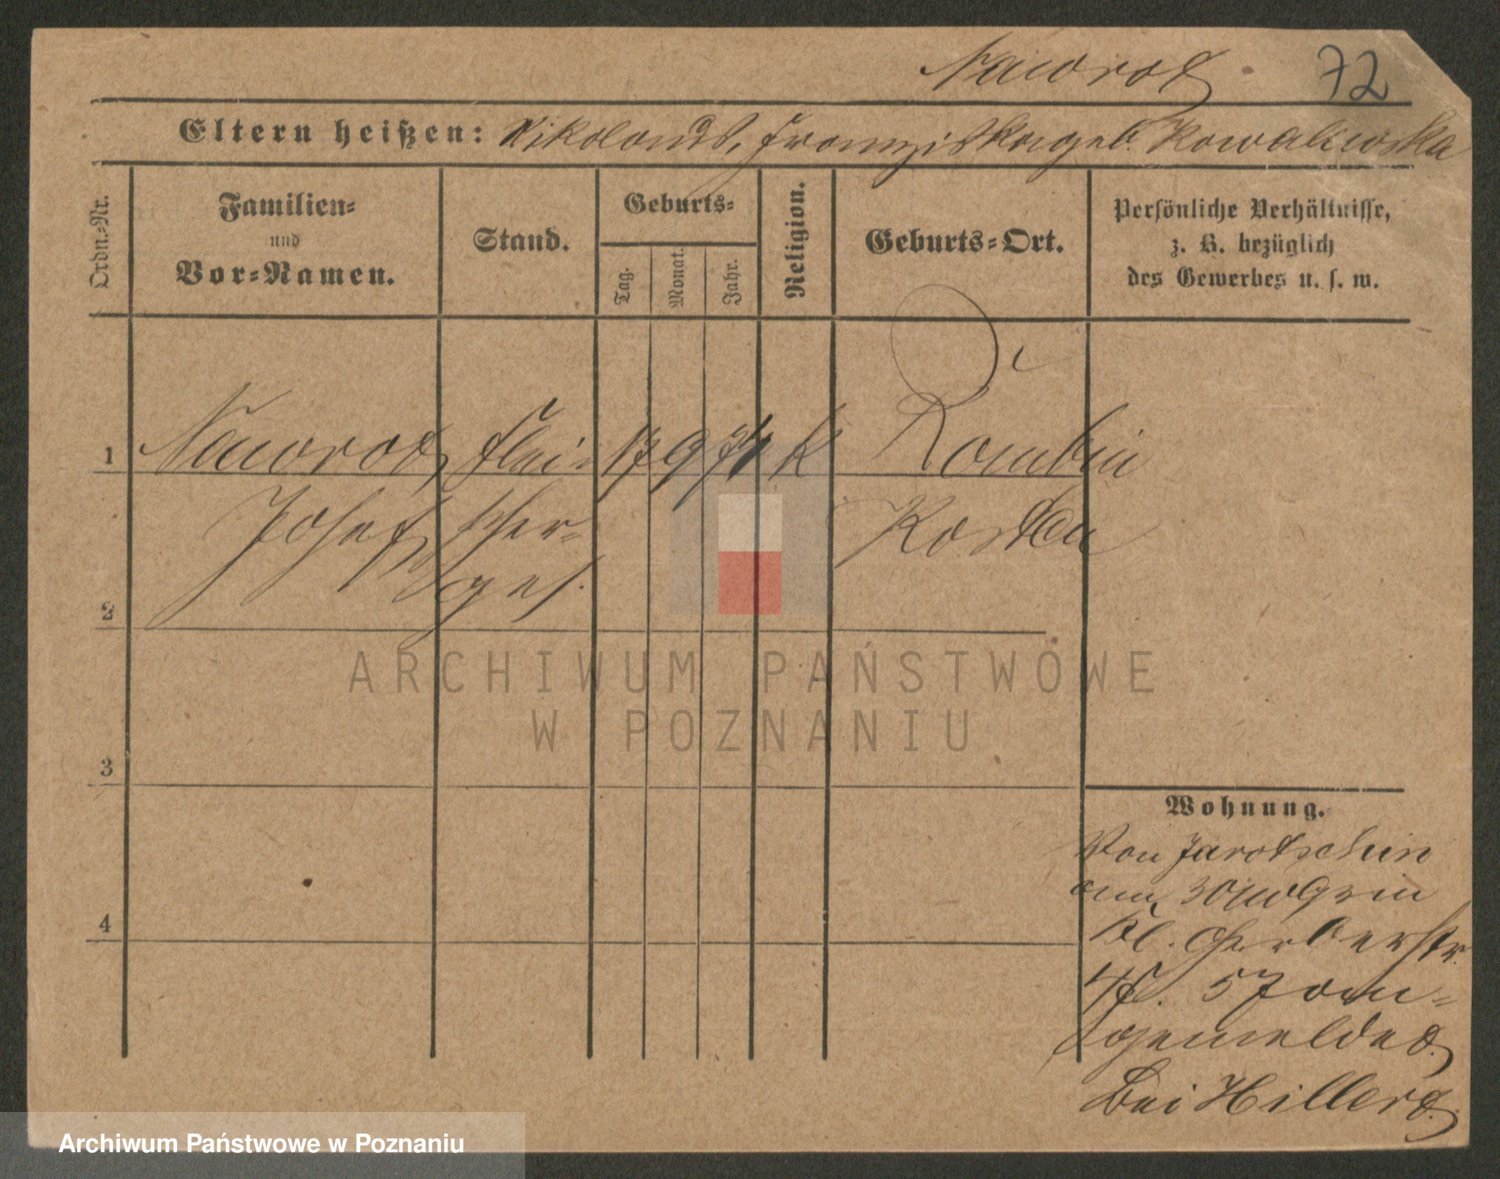 Nawrot
72
Eltern heißen: Nikolaus, Franziska geb. Kowalewska
Ordn.-Nr.
Familien-
und
Vor-Namen.
Stand.
Geburts-
Tag.
Monat.
Jahr.
Religion.
Geburts-Ort.
Persönliche Verhältnisse,
z. B. bezüglich
des Gewerbes u. s. w.
1
Nawrot, Flei- 17 9 74 K Rombin
Josef scher- Kosten
ges.
2
3
4
Wohnung.
Von Jarotschin
am
Kl. Gerberstr.
gemeldet.
Bei Hillert.
ARCHIWUM PAŃSTWOWE
W POZNANIU
Archiwum Państwowe w Poznaniu